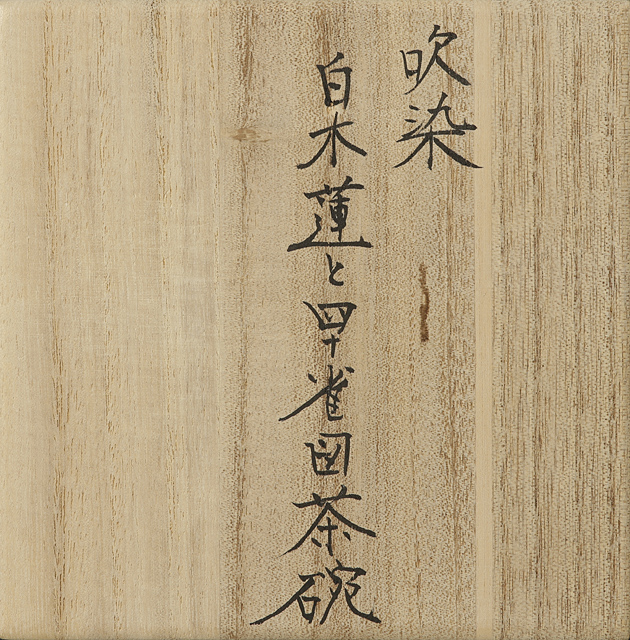 吹染
白木蓮と四十雀図茶碗